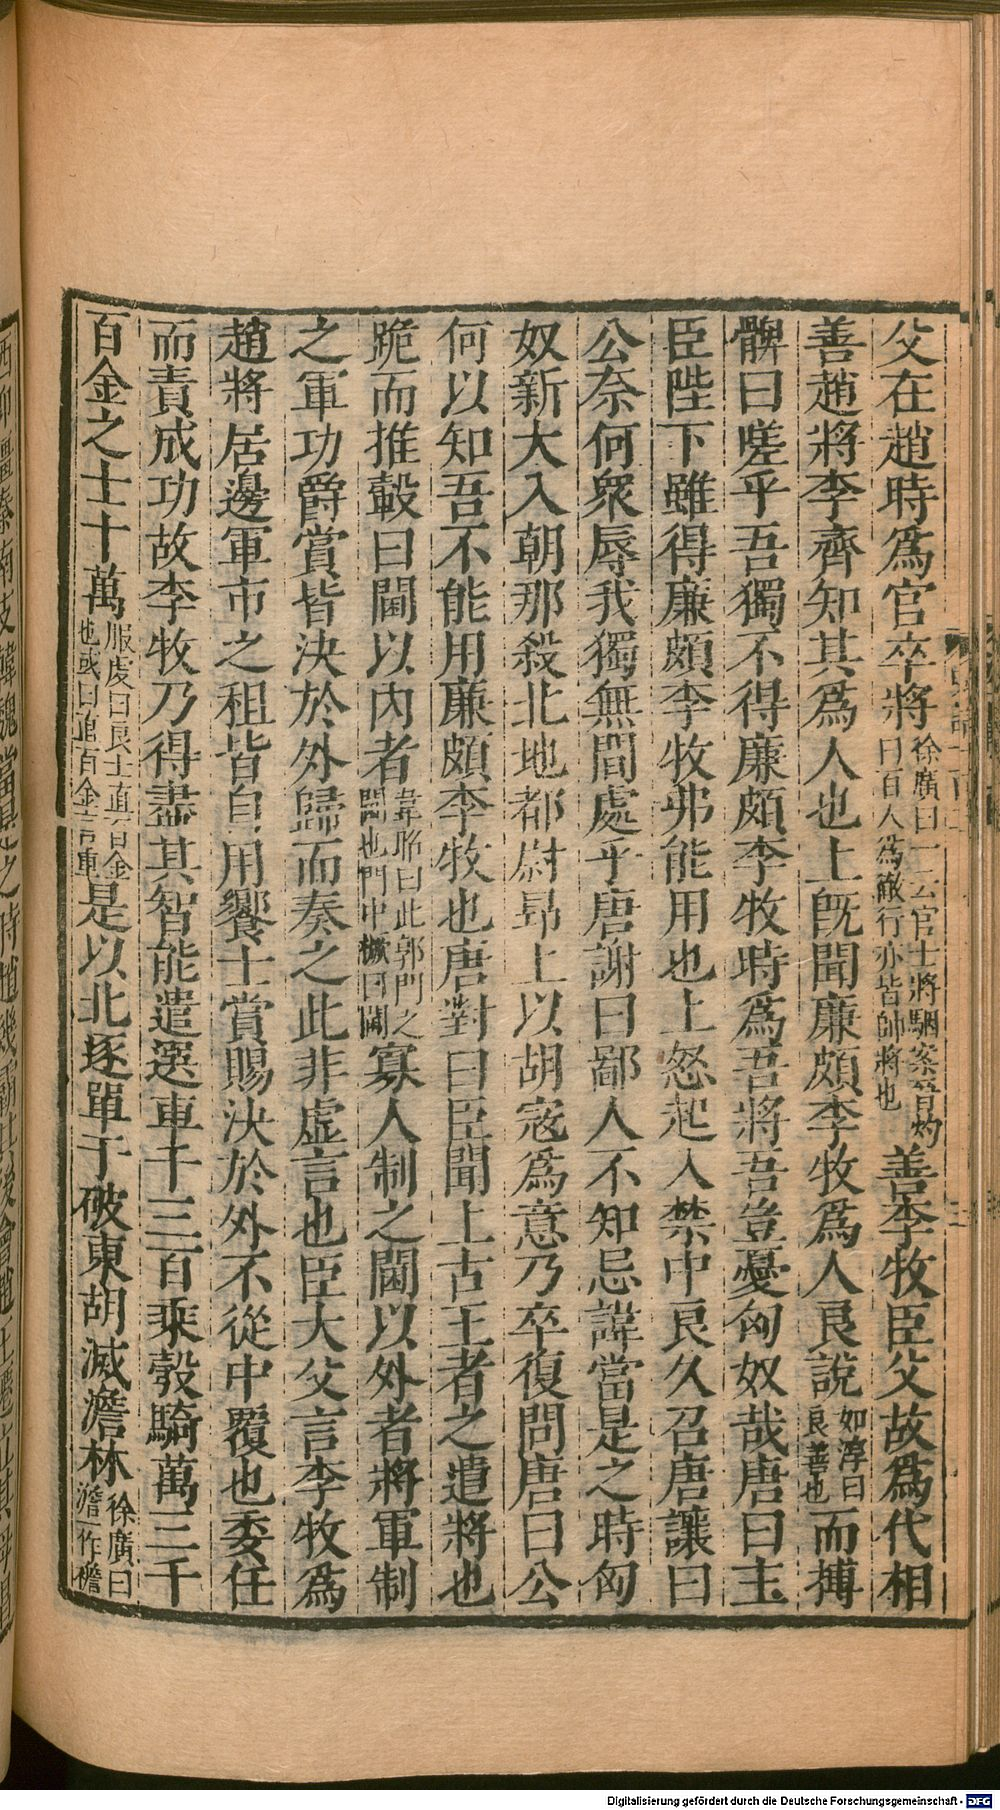 父在趙時爲官卒將徐廣曰一云官士將駰案晉灼曰百人爲徹行亦皆帥將也善李牧臣父故爲代相
善趙將李齊知其爲人也上旣聞廉頗李牧爲人良說如淳曰良善也而搏
髀曰嗟乎吾獨不得廉頗李牧時爲吾將吾豈憂匈奴哉唐曰主
臣陛下雖得廉頗李牧弗能用也上怒起入禁中良久召唐讓曰
公奈何衆辱我獨無間處乎唐謝曰鄙人不知忌諱當是之時匈
奴新大入朝那殺北地都尉昂上以胡寇爲意乃卒復問唐曰公
何以知吾不能用廉頗李牧也唐對曰臣聞上古王者之遣將也
跪而推轂曰閫以內者韋昭曰此郭門之閫也門中橛曰閫寡人制之閫以外者將軍制
之軍功爵賞皆決於外歸而奏之此非虛言也臣大父言李牧爲
趙將居邊軍市之租皆自用饗士賞賜決於外不從中覆也委任
而責成功故李牧乃得盡其智能遣選車千三百乘彀騎萬三千
百金之士十萬服虔曰良士直百金也或曰直百金言重是以北逐單于破東胡滅澹林徐廣曰澹一作襜
Digitalisierung gefördert durch die Deutsche Forschungsgemeinschaft - DFG